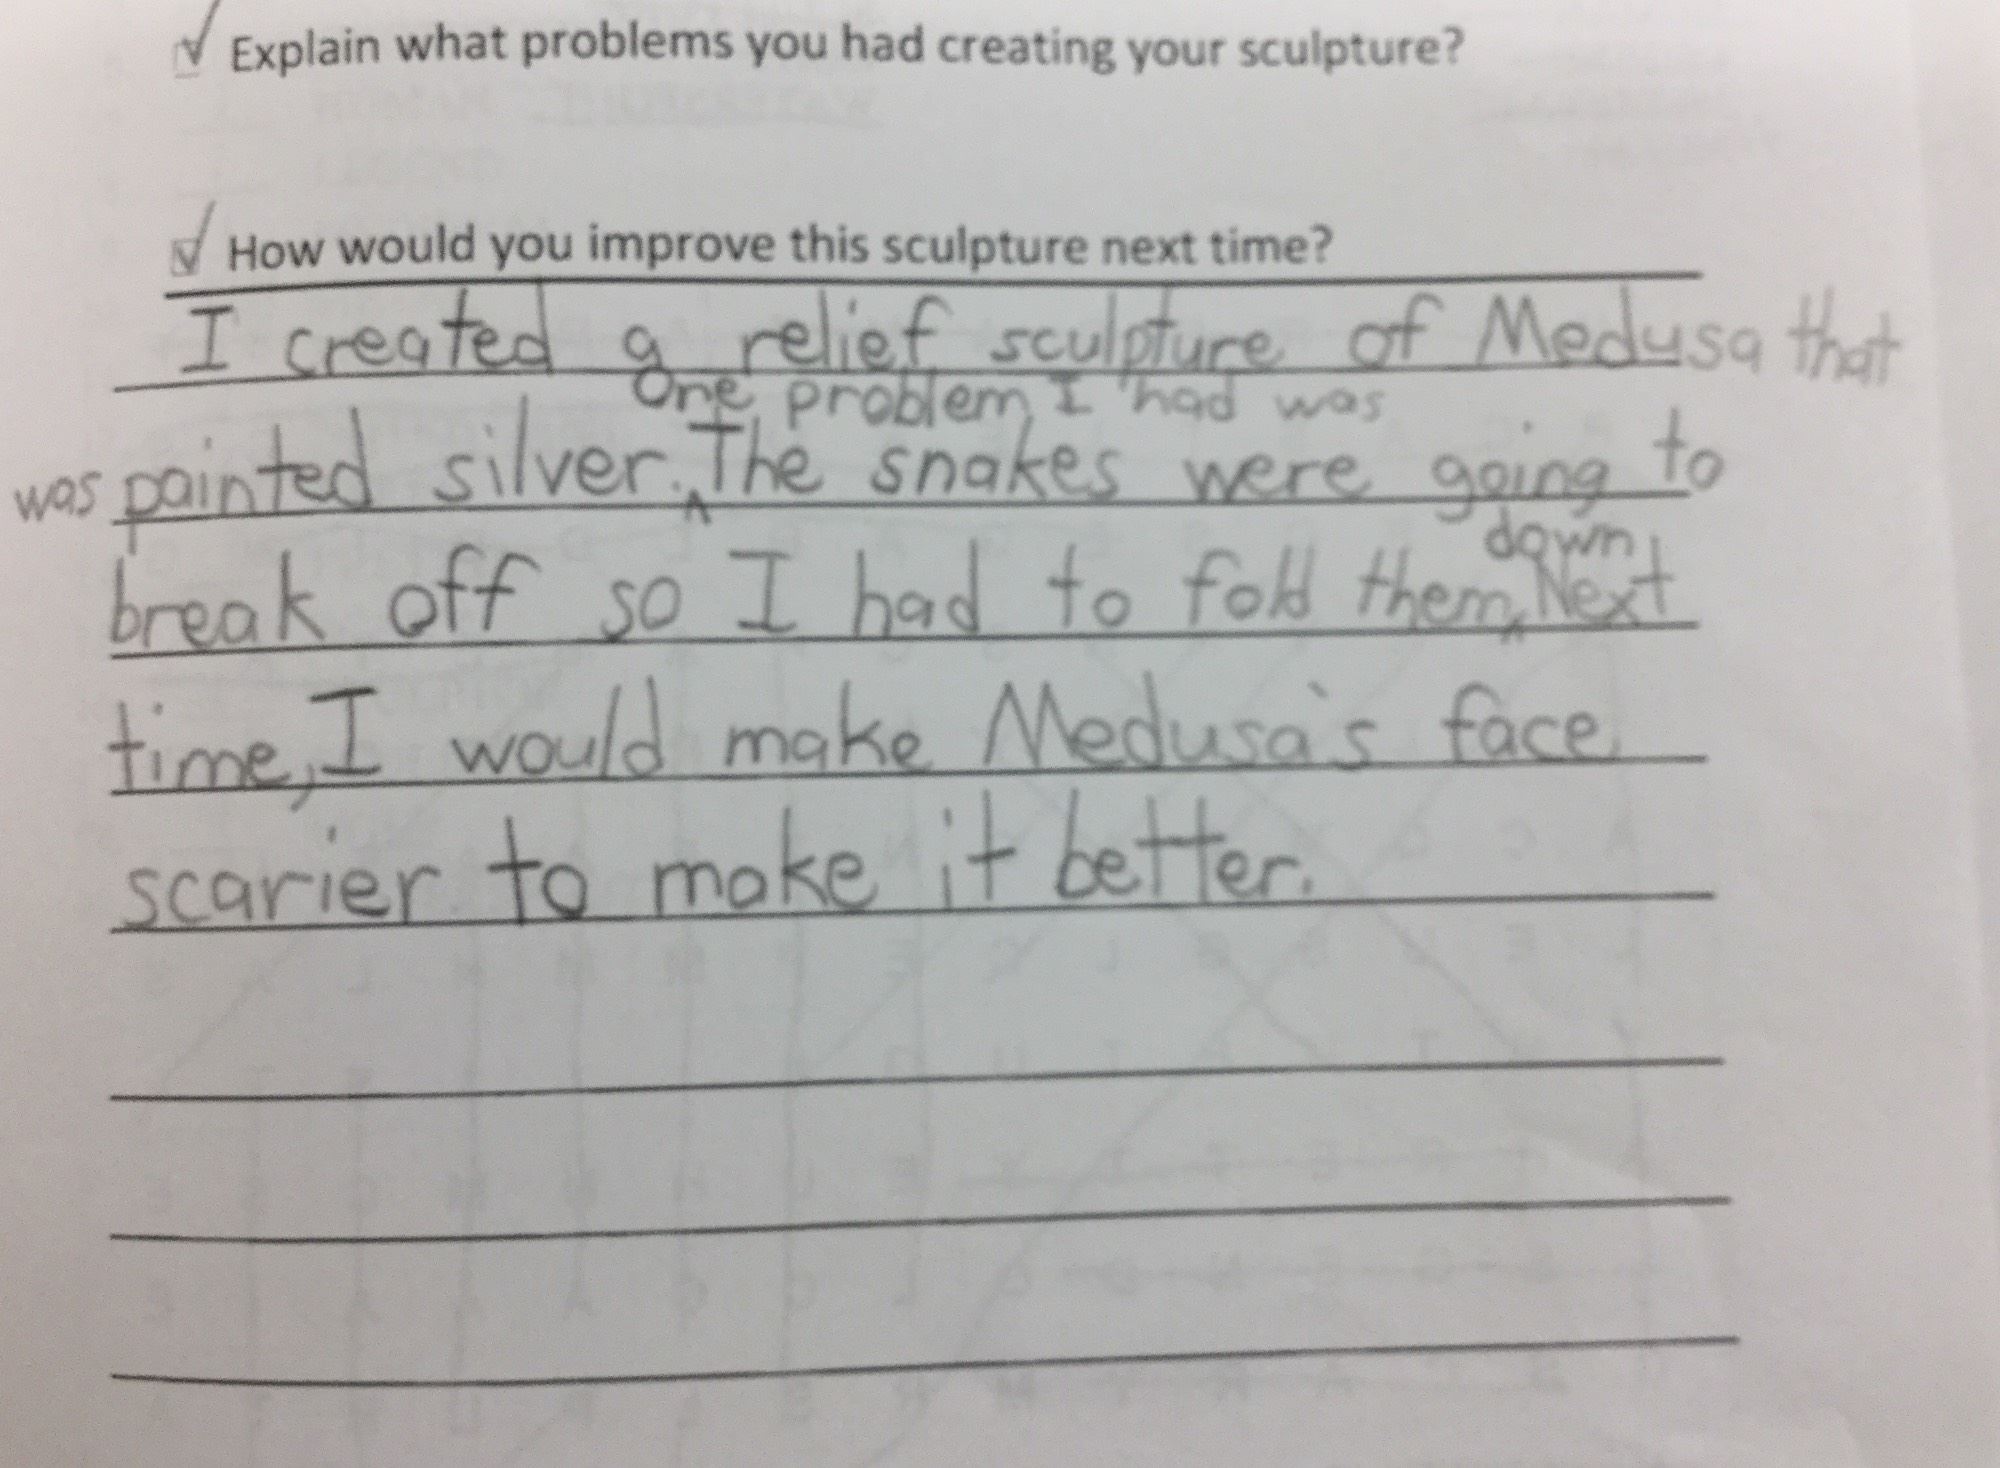 Explain what problems you had creating your sculpture?
How would you improve this sculpture next time?
I created a relief sculpture of Medusa that
One problem I had was
was painted silver. The snakes were going to
down
break off so I had to fold them. Next
time, I would make Medusa's face
scarier to make it better.